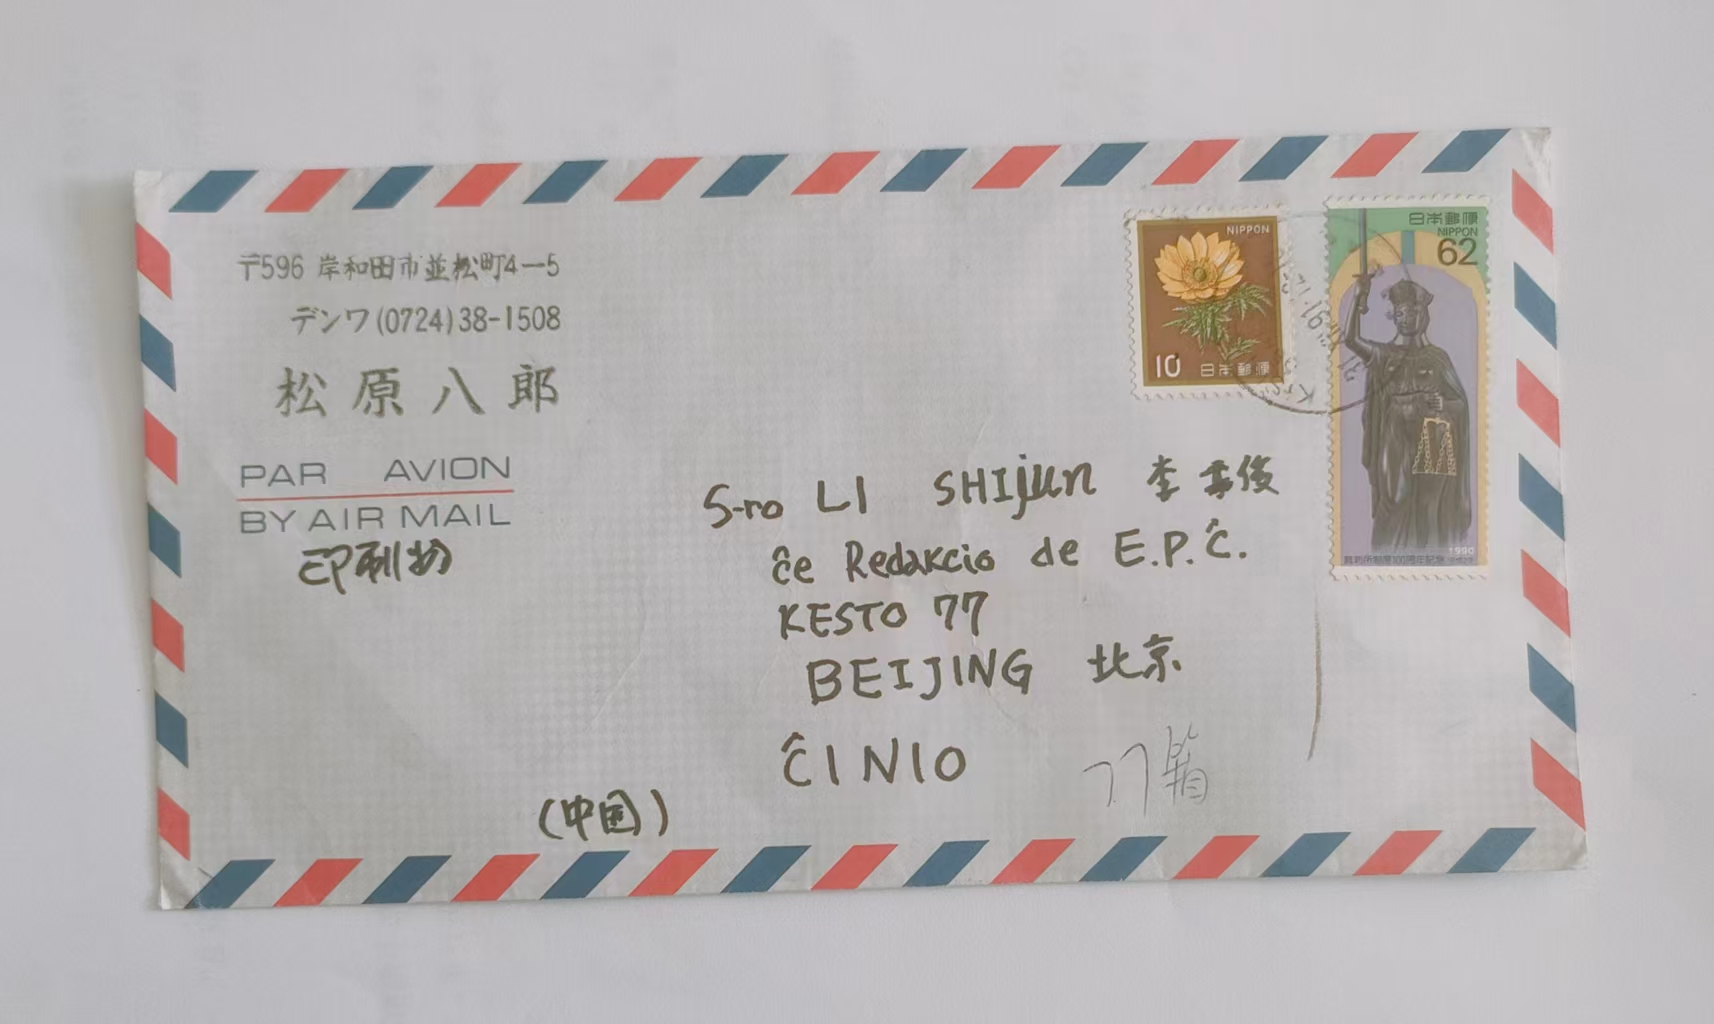 〒596 岸和田市並松町4-5
デンワ(0724)38-1508
松原八郎
PAR AVION
BY AIR MAIL
印刷物
NIPPON
10 日本郵便
日本郵便
NIPPON
62
1990
裁判所制度100周年記念
S-ro LI SHIjun 李士俊
ĉe Redakcio de E.P.Ĉ.
KESTO 77
BEIJING 北京
ĈINIO
(中国)
77箱